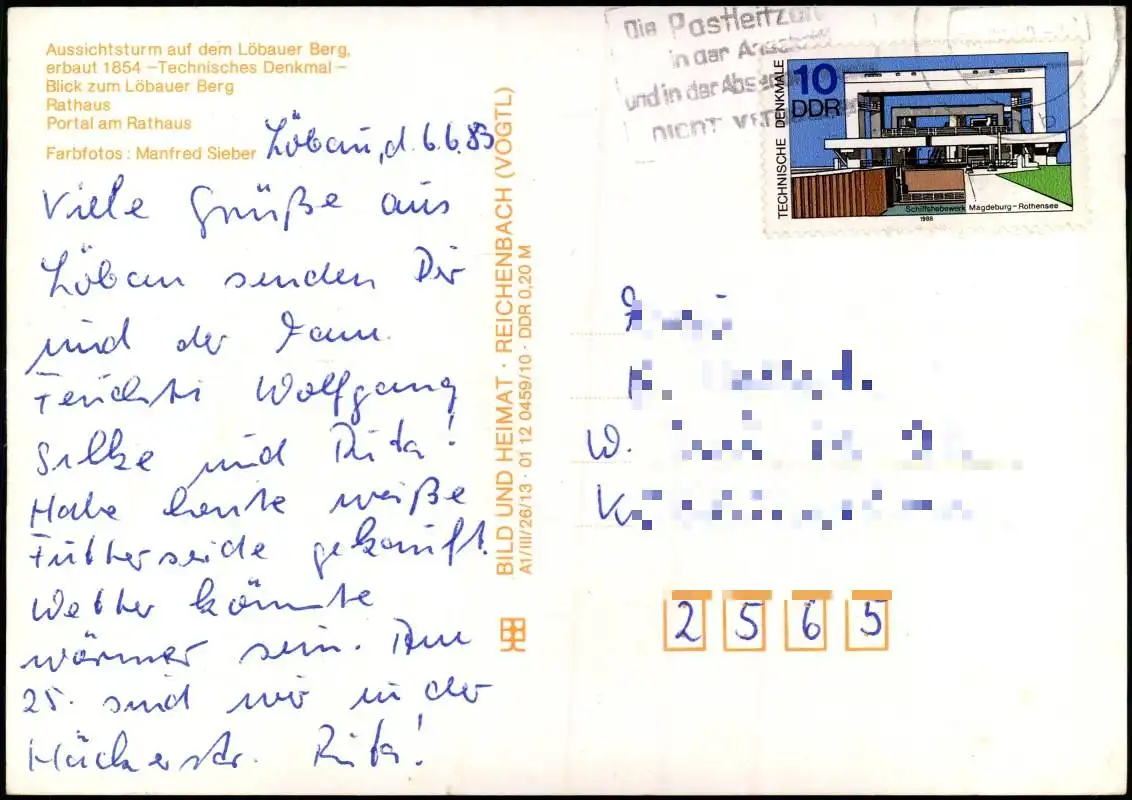 Aussichtsturm auf dem Löbauer Berg,
erbaut 1854 –Technisches Denkmal–
Blick zum Löbauer Berg
Rathaus
Portal am Rathaus
Farbfotos: Manfred Sieber
Löbau, d. 6.6.89
Viele Grüße aus
Löbau senden Dir
und der Fam.
Wolfgang
Silke und Rita!
Habe heute weiße
Futterseide gekauft.
Wetter könnte
wärmer sein. Am
25. sind wir in der
Häckerstr. Rita!
BILD UND HEIMAT · REICHENBACH (VOGTL)
A1/III/26/13 · 01 12 0459/10 · DDR 0,20 M
Die Postleitzahl
in der
und in der
nicht
10
DDR
TECHNISCHE DENKMALE
Schiffshebewerk Magdeburg-Rothensee
1988
W.
2 5 6 5